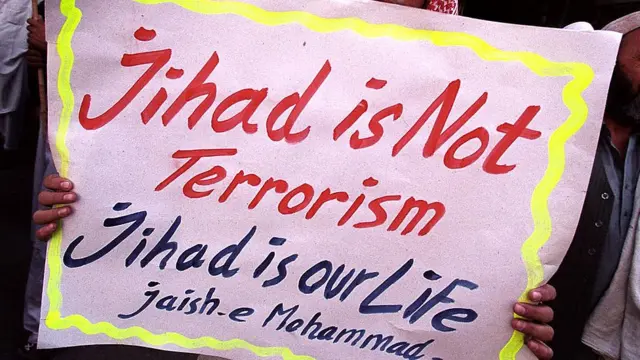 Jihad is Not
Terrorism
Jihad is our Life
jaish-e Mohammad-